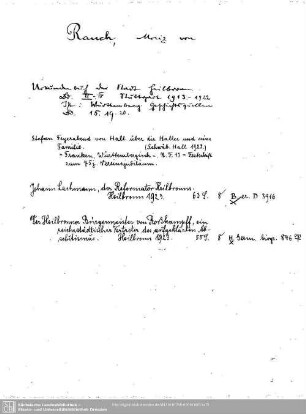 Rauch, Moriz von
Urkundenbuch der Stadt Heilbronn
Bd. II-IV Stuttgart 1913-1922
In: Württemberg. Geschichtsquellen
Bd. 15. 19. 20.
Stefan Feyerabend von Hall über die Haller und seine
Familie. (Schwäb. Hall 1922)
= Franken, Württembergisch-. N. F. 13 = Festschrift
zum 75j. Vereinsjubiläum.
Johann Lachmann, der Reformator Heilbronns.
Heilbronn 1923. 63 S. 8°
Der Heilbronner Bürgermeister von Roßkampff, ein
reichsstädtischer Vertreter des aufgeklärten Ab-
solutismus. Heilbronn 1923. 55 S. 8°